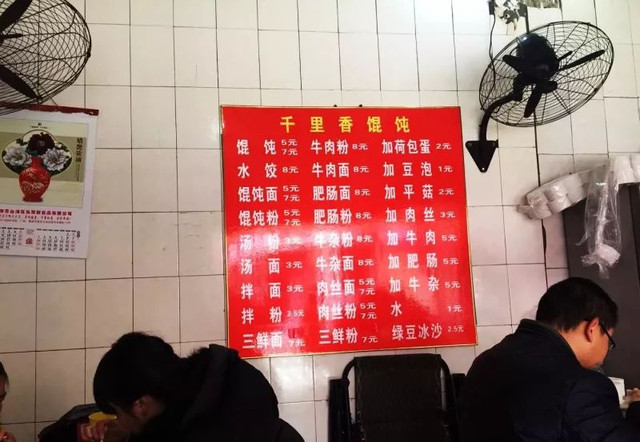 千里香馄饨
馄饨 5元 7元 牛肉粉 8元 加荷包蛋 2元
水饺 8元 牛肉面 8元 加豆泡 1元
馄饨面 5元 7元 肥肠面 8元 加平菇 2元
馄饨粉 5元 7元 肥肠粉 8元 加肉丝 3元
汤粉 3元 牛杂粉 8元 加牛肉 5元
汤面 3元 牛杂面 8元 加肥肠 5元
拌面 3元 肉丝面 5元 7元 加牛杂 5元
拌粉 2.5元 肉丝粉 5元 7元 水 1元
三鲜面 7元 三鲜粉 7元 绿豆冰沙 2.5元